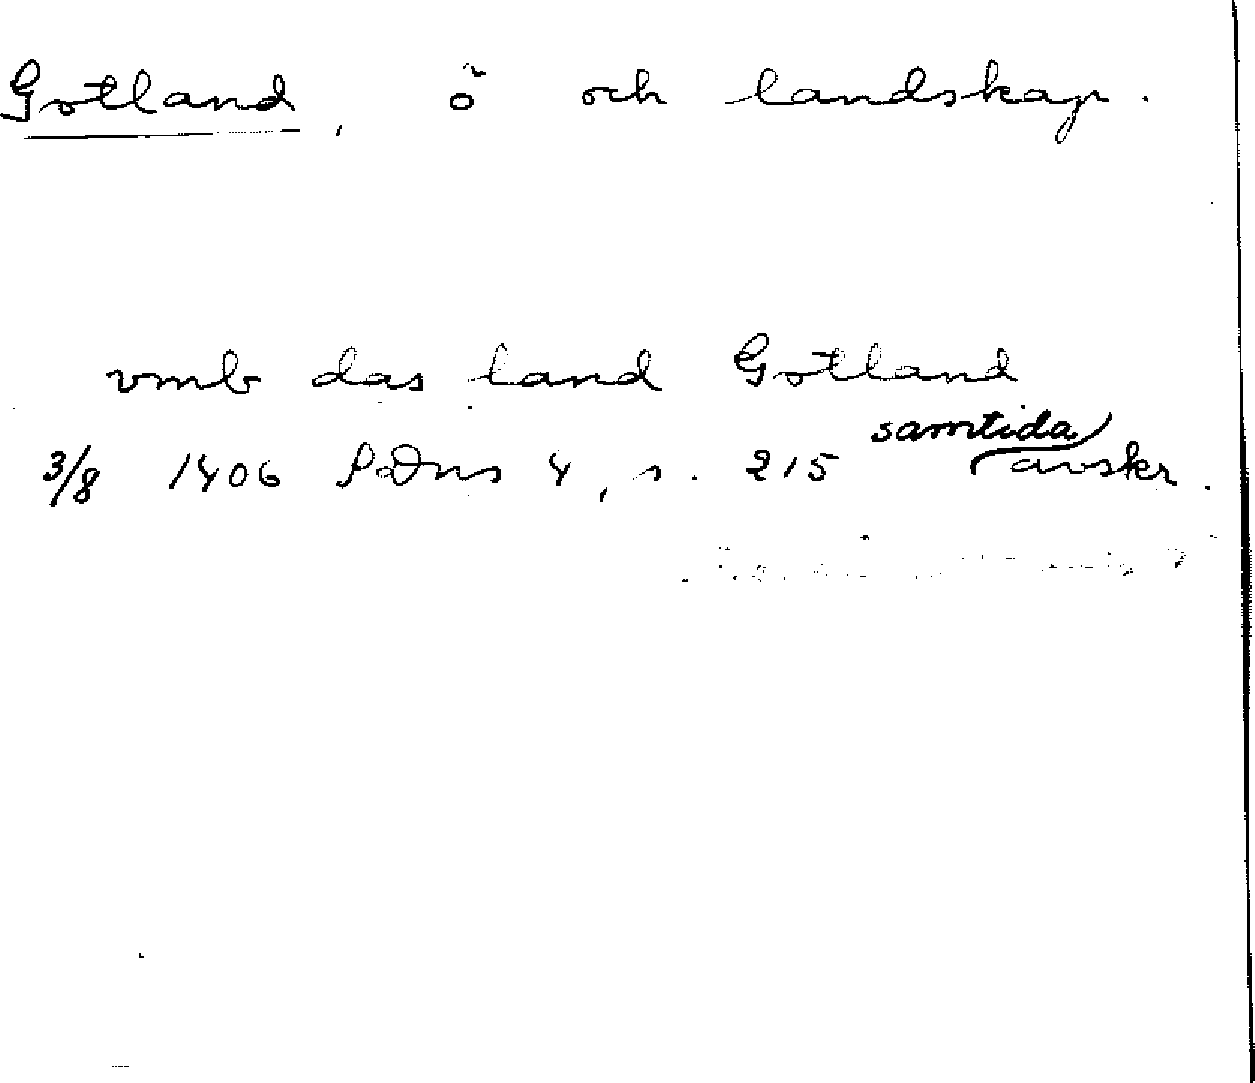 Gotland, ö och landskap.
vmb das land Gotland
3/8 1406 SDns 4, s. 215 samtida avskr.